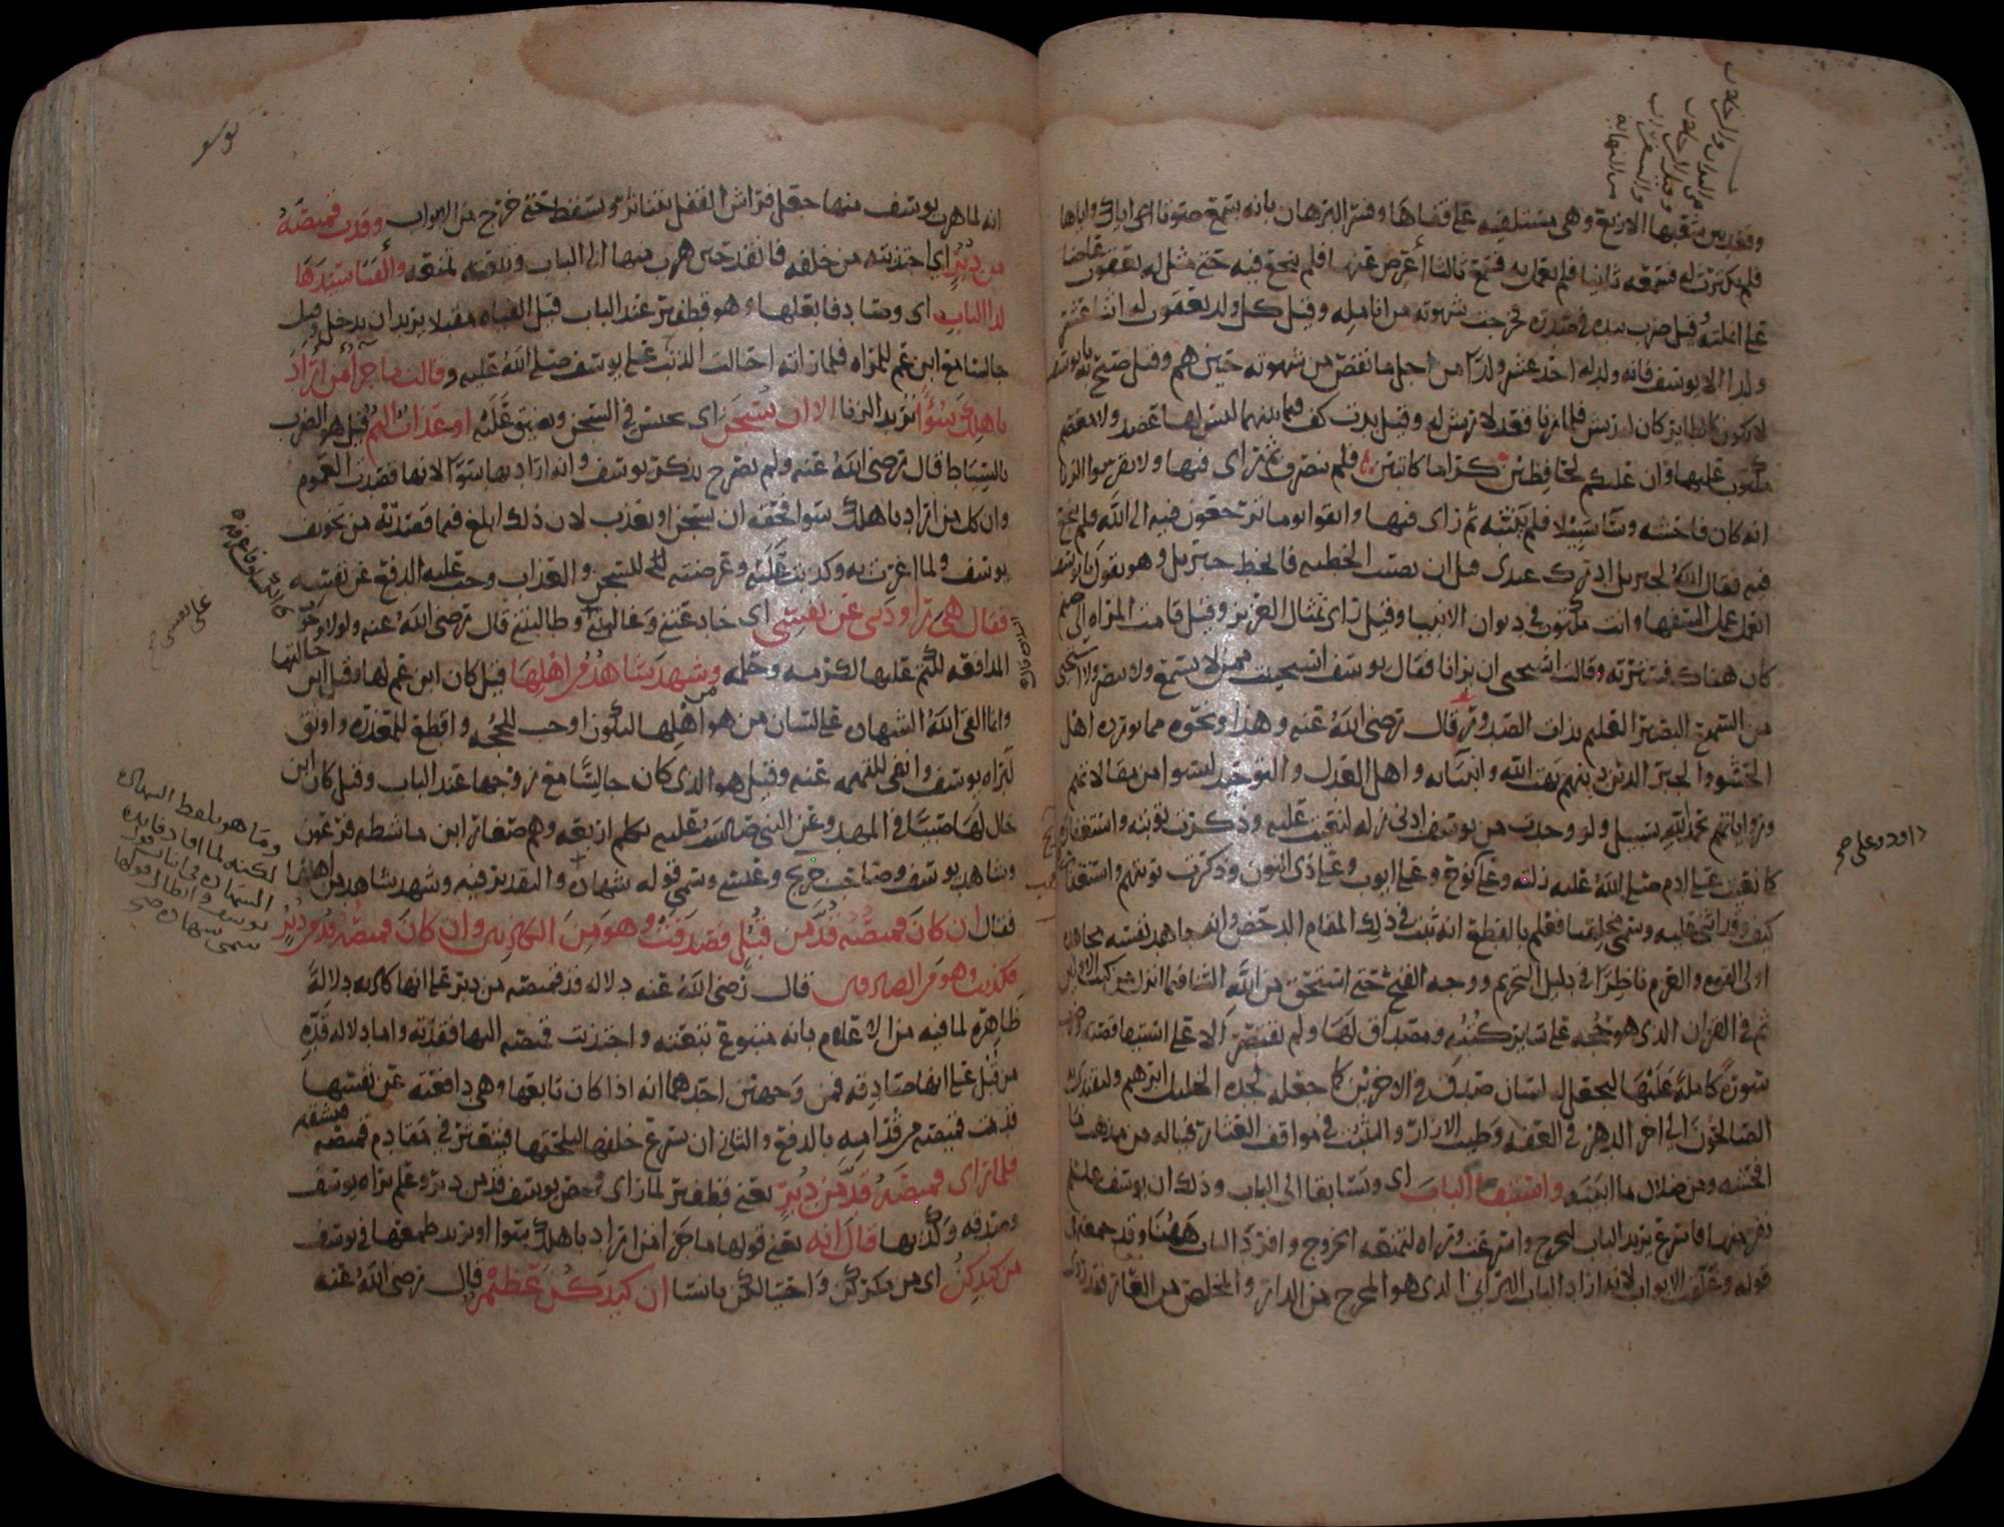 وقعد بين شعبها الاربع وهي مستلقيه على قفاها وفسر البرهان بانه سمع صوتا اياك واياها
فلم يكترث له فسمعه ثانيا فلم يعمل به فسمع ثالثا أعرض عنها فلم ينجع فيه حتى مثل له يعقوب عاضا
على انملته وقيل ضرب بيده في صدره فخرجت شهوته من انامله وقيل كل ولد يعقوب له اثنا عشر
ولدا الا يوسف فانه ولد له احد عشر ولدا من اجل ما نقص من شهوته حين هم وقيل صيح به يا يوسف
لا تكن كالطاير كان له ريش فلما زنا قعد لا ريش له وقيل بدت كف فيما بينهما ليس لها عضد ولا معصم
مكتوب عليها وان عليكم لحافظين كراما كاتبين فلم ينصرف ثم راى فيها ولا تقربوا الزنا
انه كان فاحشه وساء سبيلا فلم ينته ثم راى فيها واتقوا يوما ترجعون فيه الى الله فلم ينجع
فيه فقال الله لجبريل ادرك عبدى قبل ان يصيب الخطيه فانحط جبريل وهو يقول يا يوسف
اتعمل عمل السفها وانت مكتوب في ديوان الانبيا وقيل راى تمثال العزيز وقيل قامت المراه الى صنم
كان هناك فسترته وقالت استحيى ان يرانا فقال يوسف استحييت ممن لا يسمع ولا يبصر ولا استحيى
من السميع البصير العليم بذات الصدور قال رضى الله عنه وهذا ونحوه مما يورده اهل
الحشو والجبر الذين دينهم بهت الله وانبيائه واهل العدل والتوحيد ليسوا من مقالاتهم
ورواياتهم بحمد الله بسبيل ولو وجدت من يوسف ادنى زله لنعيت عليه وذكرت توبته واستغفاره
كما نعيت على ادم صلى الله عليه زلته وعلى نوح وعلى ايوب وعلى ذى النون وذكرت توبتهم واستغفارهم
كيف وقد اثنى عليه وسمى مخلصا فعلم بالقطع انه ثبت في ذلك المقام الدحض وانه جاهد نفسه مجاهده
اولى القوه والعزم ناظرا في دليل التحريم ووجه القبح حتى استحق من الله الثنا فيما انزل من كتب الاولين
ثم في القران الذى هو حجه على ساير كتبه ومصداق لها ولم يقتصر الا على استيفا قصته وضرب
سورة كاملة عليها ليجعل له لسان صدق في الاخرين كما جعله لجده الخليل ابرهيم وليقتدى به
الصالحون الى اخر الدهر في العفه وطيب الازار والتثبت في مواقف العثار فياله من مذهب ما
افحشه ومن ضلال ما ابينه واستبقا الباب اى وتسابقا الى الباب وذلك ان يوسف عليه السلم
نفر منها فاسرع يريد الباب ليخرج واسرعت وراه لتمنعه الخروج وافرد الباب ههنا وقد جمعه في
قوله وغلقت الابواب لانه اراد الباب البراني الذى هو المخرج من الدار والمخلص من العار فقد روى
داود وعلى صح
يوسف
انه لما هرب يوسف منها جعل فراش القفل يتناثر ويسقط حتى خرج من الابواب وقدت قميصه
من دبر اى اجتذبته من خلفه فانقد حين هرب منها الى الباب وتبعته لتمنعه وألفيا سيدها
لدا الباب اى وصادفا بعلها وهو قطفير عند الباب قيل الفياه مقبلا يريد ان يدخل وقيل
جالسا مع ابن عم للمراه فلما راته احالت الذنب على يوسف صلى الله عليه وقالت ما جزا من اراد
باهلك سوءا تريد الزنا الا ان يسجن اى يحبس في السجن ويضيق عليه او عذاب اليم قيل هو الضرب
بالسياط قال رضى الله عنه ولم يصرح بذكر يوسف وانه اراد بها سوا لانها قصدت العموم
وان كل من اراد باهلك سوا فحقه ان يسجن او يعذب لان ذلك ابلغ فيما قصدته من تخويف
يوسف ولما اغرت به وكذبت عليه وعرضته للسجن والعذاب وجب عليه الدفع عن نفسه
فقال هى راودتنى عن نفسى اى خادعتنى وغالبتنى وطالبتنى قال رضى الله عنه ولولا وجوب
المدافعه لكتم عليها لكرمه وحلمه وشهد شاهد من اهلها قيل كان ابن عم لها وقيل ابن خالتها
وانما القى الله الشهاده على لسان من هو من اهلها لتكون اوجب للحجه واقطع للمعذره واوثق
لبراه يوسف وانفى للتهمه عنه وقيل هو الذى كان جالسا مع زوجها عند الباب وقيل كان ابن
خال لها صبيا في المهد وعن النبي صلى الله عليه تكلم اربعه وهم صغار ابن ماشطه فرعون
وشاهد يوسف وصاحب جريج وعيسى وسمى قوله شهاده والتقدير فيه وشهد شاهد من اهلها
فقال ان كان قميصه قد من قبل فصدقت وهو من الكاذبين وان كان قميصه قد من دبر
فكذبت وهو من الصادقين قال رضى الله عنه دلاله قد قميصه من دبر على انها كاذبه دلالة
ظاهره لما فيه من الاعلام بانه متبوع تبعته واجتذبت قميصه اليها فقدته واما دلاله قده
من قبل على انها صادقه فمن وجهين احدهما انه اذا كان تابعها وهى دافعته عن نفسها
قدت قميصه من قدامه بالدفع والثاني ان يسرع خلفها ليلحقها فيتعثر في مقادم قميصه فيشقه
فلما راى قميصه قد من دبر يعنى قطفير لما راى قميص يوسف قد من دبر وعلم براه يوسف
وصدقه وكذبها قال انه يعنى قولها ما جزا من اراد باهلك سوا او تريد طمعها في يوسف
من كيدكن اى من مكركن واحتيالكن يا نسا ان كيدكن عظيم قال رضى الله عنه
وما هو بلفظ الشهاده
لكنه لما افاد فايده
الشهاده في اثبات قول
يوسف وابطال قولها
سمى شهاده صح